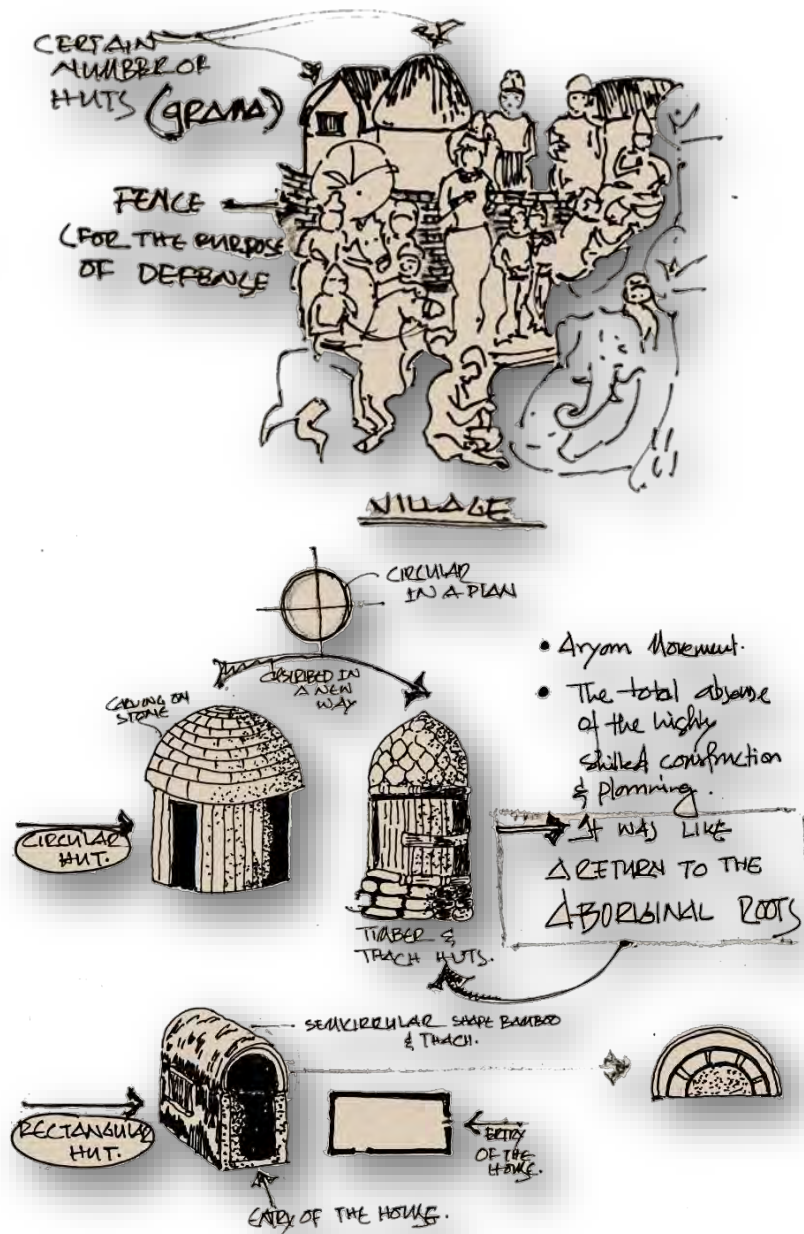 CERTAIN
NUMBER OF
HUTS (GRAMA)
FENCE
(FOR THE PURPOSE
OF DEFENSE
VILLAGE
CIRCULAR
IN A PLAN
DESCRIBED IN
A NEW
WAY
CARVING ON
STONE
CIRCULAR
HUT.
TIMBER &
THACH HUTS.
• Aryan Movement.
• The total absense
of the highly
skilled construction
& planning.
IT WAS LIKE
A RETURN TO THE
ABORIGINAL ROOTS
SEMICIRRULAR SHAPE BAMBOO
& THACH.
RECTANGULAR
HUT.
ENTRY
OF THE
HOUSE.
ENTRY OF THE HOUSE.